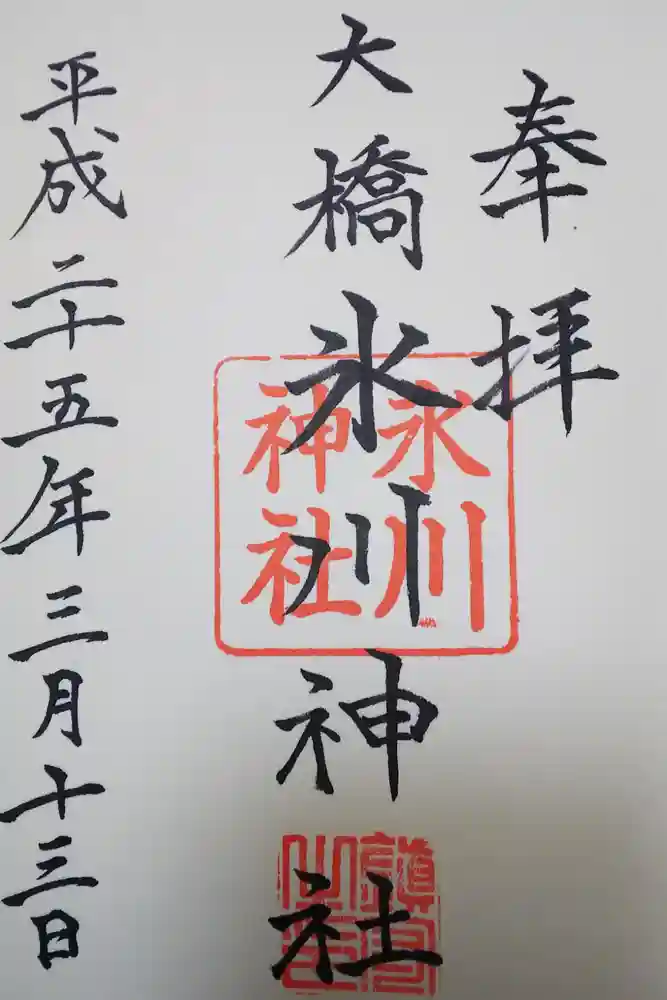 奉拝
大橋氷川神社
氷川
神社
平成二十五年三月十三日